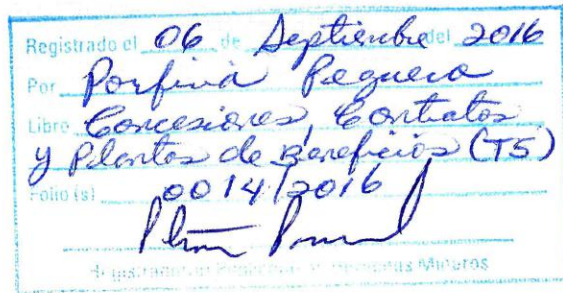 Registrado el 06 de Septiembre del 2016
Por Porfiria Peguero
Libro Concesiones, Contratos
y Plantas de Beneficios (T5)
Folio (s) 0014/2016
Derechos Mineros